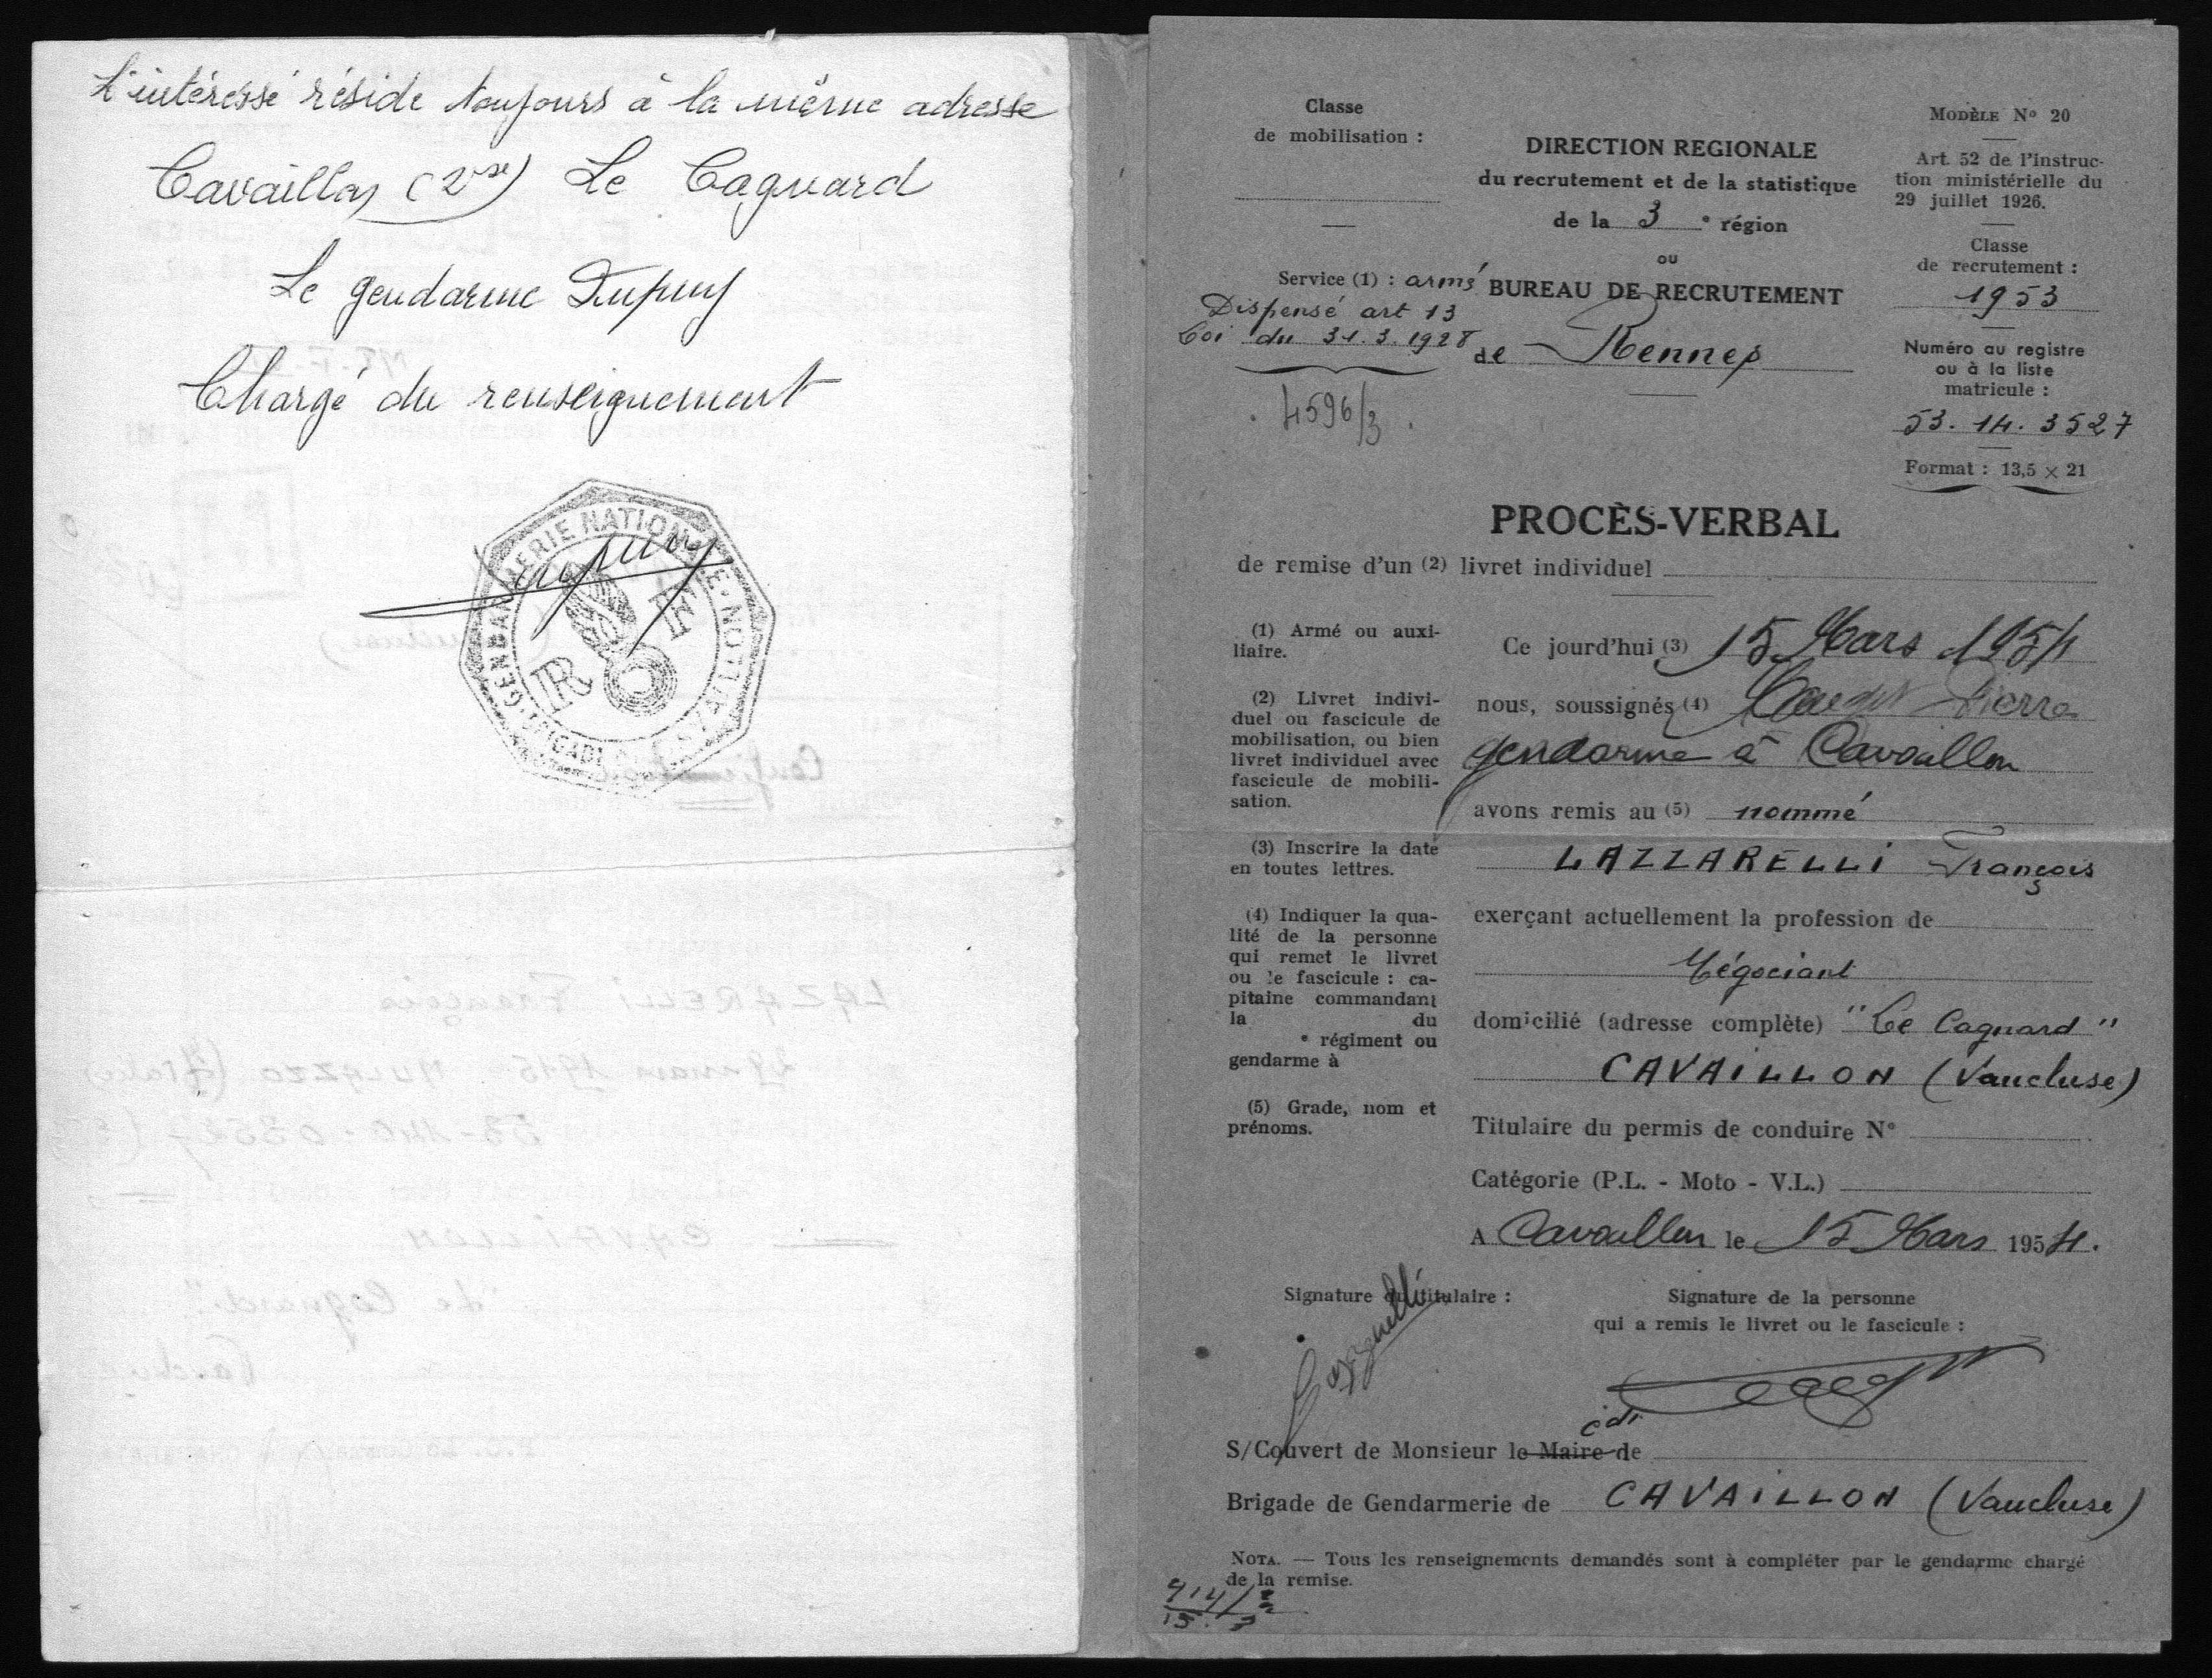 L'intéressé réside toujours à la même adresse
Cavaillon (Vse) Le Cagnard
Le gendarme Dupuy
Chargé du renseignement
GENDARMERIE NATIONALE
BRIGADE CAVAILLON
R F
Classe
de mobilisation :
Service (1) : armé
Dispensé art 13
Loi du 31.3.1928
4596/3
DIRECTION REGIONALE
du recrutement et de la statistique
de la 3 e région
ou
BUREAU DE RECRUTEMENT
de Rennes
MODÈLE No 20
Art. 52 de l'instruc-
tion ministérielle du
29 juillet 1926.
Classe
de recrutement :
1953
Numéro au registre
ou à la liste
matricule :
53.14.3527
Format : 13,5 × 21
PROCÈS-VERBAL
de remise d'un (2) livret individuel
(1) Armé ou auxi-
liaire.
(2) Livret indivi-
duel ou fascicule de
mobilisation, ou bien
livret individuel avec
fascicule de mobili-
sation.
(3) Inscrire la date
en toutes lettres.
(4) Indiquer la qua-
lité de la personne
qui remet le livret
ou le fascicule : ca-
pitaine commandant
la du
e régiment ou
gendarme à
(5) Grade, nom et
prénoms.
Ce jourd'hui (3) 15 Mars 1954
nous, soussignés (4) Pierre
gendarme à Cavaillon
avons remis au (5) nommé
LAZZARELLI François
exerçant actuellement la profession de
Négociant
domicilié (adresse complète) "Le Cagnard"
CAVAILLON (Vaucluse)
Titulaire du permis de conduire N°
Catégorie (P.L. - Moto - V.L.)
A Cavaillon le 15 Mars 1954.
Signature du titulaire :
Lazzarelli
Signature de la personne
qui a remis le livret ou le fascicule :
cdt
S/Couvert de Monsieur le Maire de
Brigade de Gendarmerie de CAVAILLON (Vaucluse)
NOTA. — Tous les renseignements demandés sont à compléter par le gendarme chargé
de la remise.